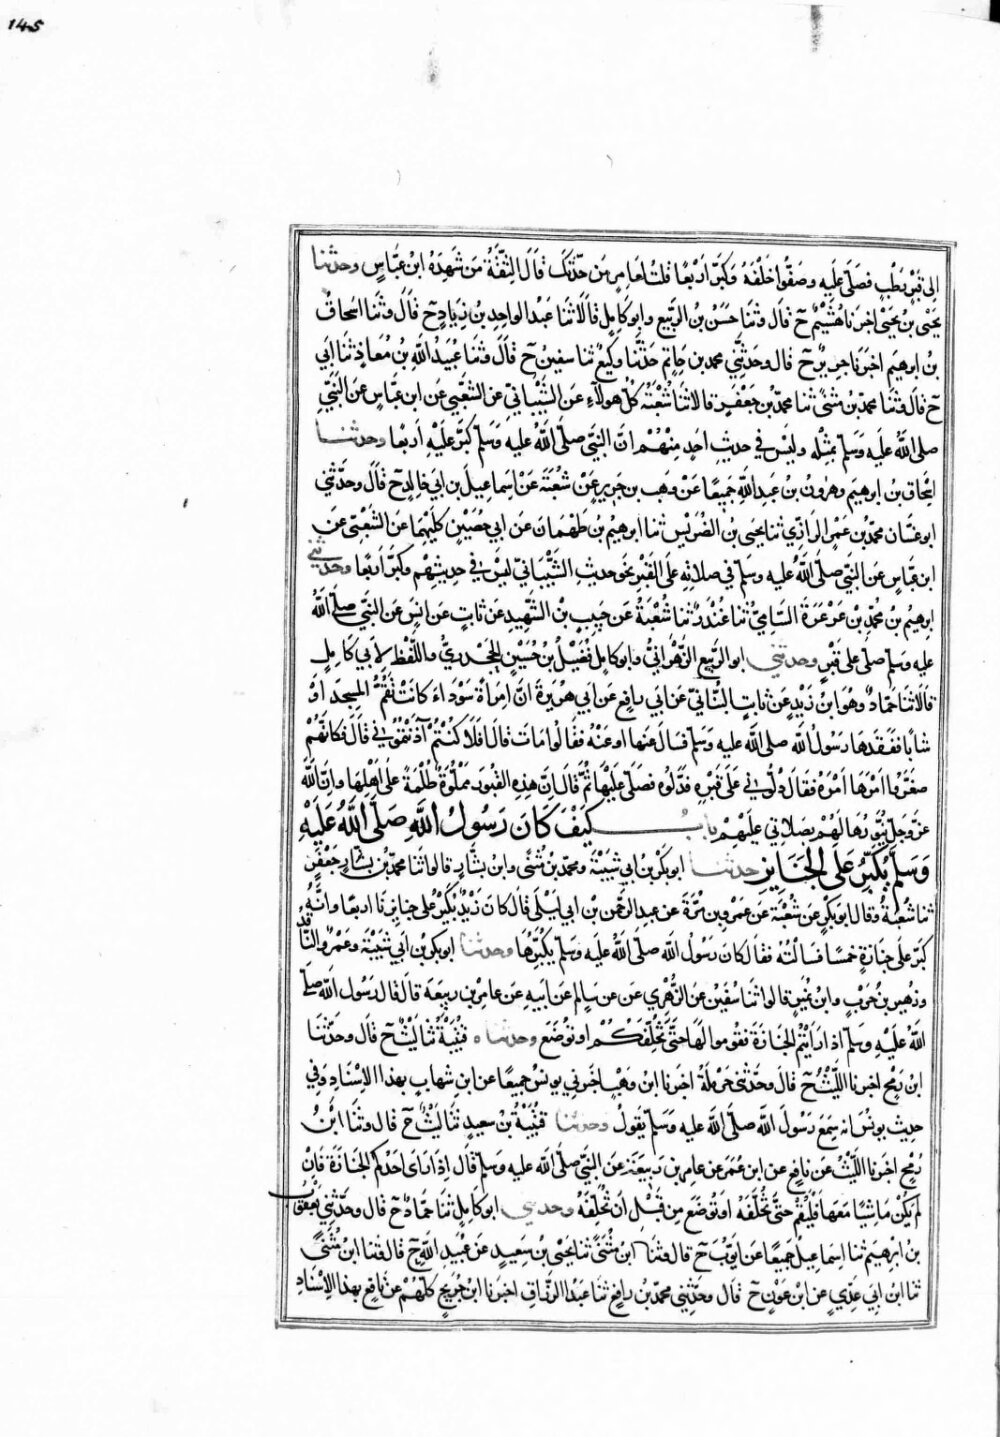 145
الى قبر رطب فصلى عليه وصفوا خلفه وكبر اربعا قلت لعامر من حدثك قال الثقة من شهده ابن عباس وحدثنا
يحيى بن يحيى اخبرنا هشيم ح قال وثنا حسن بن الربيع وابو كامل قالا ثنا عبد الواحد بن زياد ح قال وثنا اسحاق
بن ابرهيم اخبرنا جرير ح قال وحدثني محمد بن حاتم حدثنا وكيع ثنا سفين ح قال وثنا عبيد الله بن معاذ ثنا ابي
ح قال وثنا محمد بن مثنى ثنا محمد بن جعفر قالا ثنا شعبة كل هولاء عن الشيباني عن الشعبي عن ابن عباس عن النبي
صلى الله عليه وسلم بمثله وليس في حديث احد منهم ان النبي صلى الله عليه وسلم كبر عليه اربعا وحدثنا
اسحاق بن ابرهيم وهرون بن عبد الله جميعا عن وهب بن جرير عن شعبة عن اسماعيل بن ابي خالد ح قال وحدثني
ابو غسان محمد بن عمرو الرازي ثنا يحيى بن الضريس ثنا ابرهيم بن طهمان عن ابي حصين كليهما عن الشعبي عن
ابن عباس عن النبي صلى الله عليه وسلم في صلاته على القبر نحو حديث الشيباني ليس في حديثهم وكبر اربعا وحدثني
ابرهيم بن محمد بن عرعرة السامي ثنا غندر ثنا شعبة عن حبيب بن الشهيد عن ثابت عن انس عن النبي صلى الله
عليه وسلم صلى على قبر وحدثني ابو الربيع الزهراني وابو كامل فضيل بن حسين الجحدري واللفظ لابي كامل
قالا ثنا حماد وهو ابن زيد عن ثابت البناني عن ابي رافع عن ابي هريرة ان امراة سوداء كانت تقم المسجد او
شابا ففقدها رسول الله صلى الله عليه وسلم فسال عنها او عنه فقالوا مات قال افلا كنتم آذنتموني قال فكانهم
صغروا امرها امره فقال دلوني على قبره فدلوه فصلى عليها ثم قال ان هذه القبور مملوة ظلمة على اهلها وان الله
عز وجل ينورها لهم بصلاتي عليهم باب كيف كان رسول الله صلى الله عليه
وسلم يكبر على الجنايز حدثنا ابو بكر بن ابي شيبة ومحمد بن مثنى وابن بشار قالوا ثنا محمد بن بشار جعفر
ثنا شعبة وقال ابو بكر عن شعبة عن عمرو بن مرة عن عبد الرحمن بن ابي ليلى قال كان زيد يكبر على جنايزنا اربعا وانه
كبر على جنازة خمسا فسالته فقال كان رسول الله صلى الله عليه وسلم يكبرها وحدثنا ابو بكر بن ابي شيبة وعمرو الناقد
وزهير بن حرب وابن نمير قالوا ثنا سفين عن الزهري عن عن سالم عن ابيه عن عامر بن ربيعة قال قال رسول الله صلى
الله عليه وسلم اذا رايتم الجنازة فقوموا لها حتى تخلفكم او توضع وحدثناه قتيبة ثنا ليث ح قال وحدثنا
ابن رمح اخبرنا الليث ح قال وحدثني حرملة اخبرنا ابن وهب اخبرني يونس جميعا عن ابن شهاب بهذا الاسناد وفي
حديث يونس انه سمع رسول الله صلى الله عليه وسلم يقول وحدثنا قتيبة بن سعيد ثنا ليث ح قال وثنا ابن
رمح اخبرنا الليث عن نافع عن ابن عمر عن عامر بن ربيعة عن النبي صلى الله عليه وسلم قال اذا راى احدكم الجنازة فان
لم يكن ماشيا معها فليقم حتى تخلفه او توضع من قبل ان تخلفه وحدثني ابو كامل ثنا حماد ح قال وحدثني يعقوب
بن ابرهيم ثنا اسماعيل جميعا عن ايوب ح قال وثنا ابن مثنى ثنا يحيى بن سعيد عن عبيد الله ح قال وثنا ابن مثنى
ثنا ابن ابي عدي عن ابن عون ح قال وحدثني محمد بن رافع ثنا عبد الرزاق اخبرنا ابن جريج كلهم عن نافع بهذا الاسناد